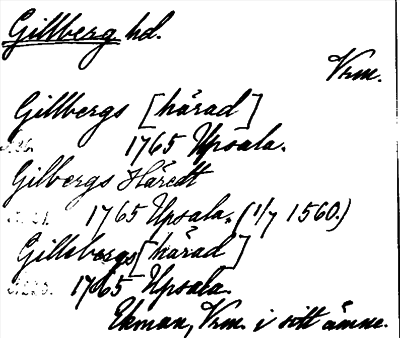 Gillberg hd.
Vrm.
Gillbergs [härad]
1765 Upsala.
Gilbergs Häredt
1765 Upsala. (1/7 1560.)
Gillsbergs [härad]
1765 Upsala.
Ekman, Vrm. i sitt ämne.